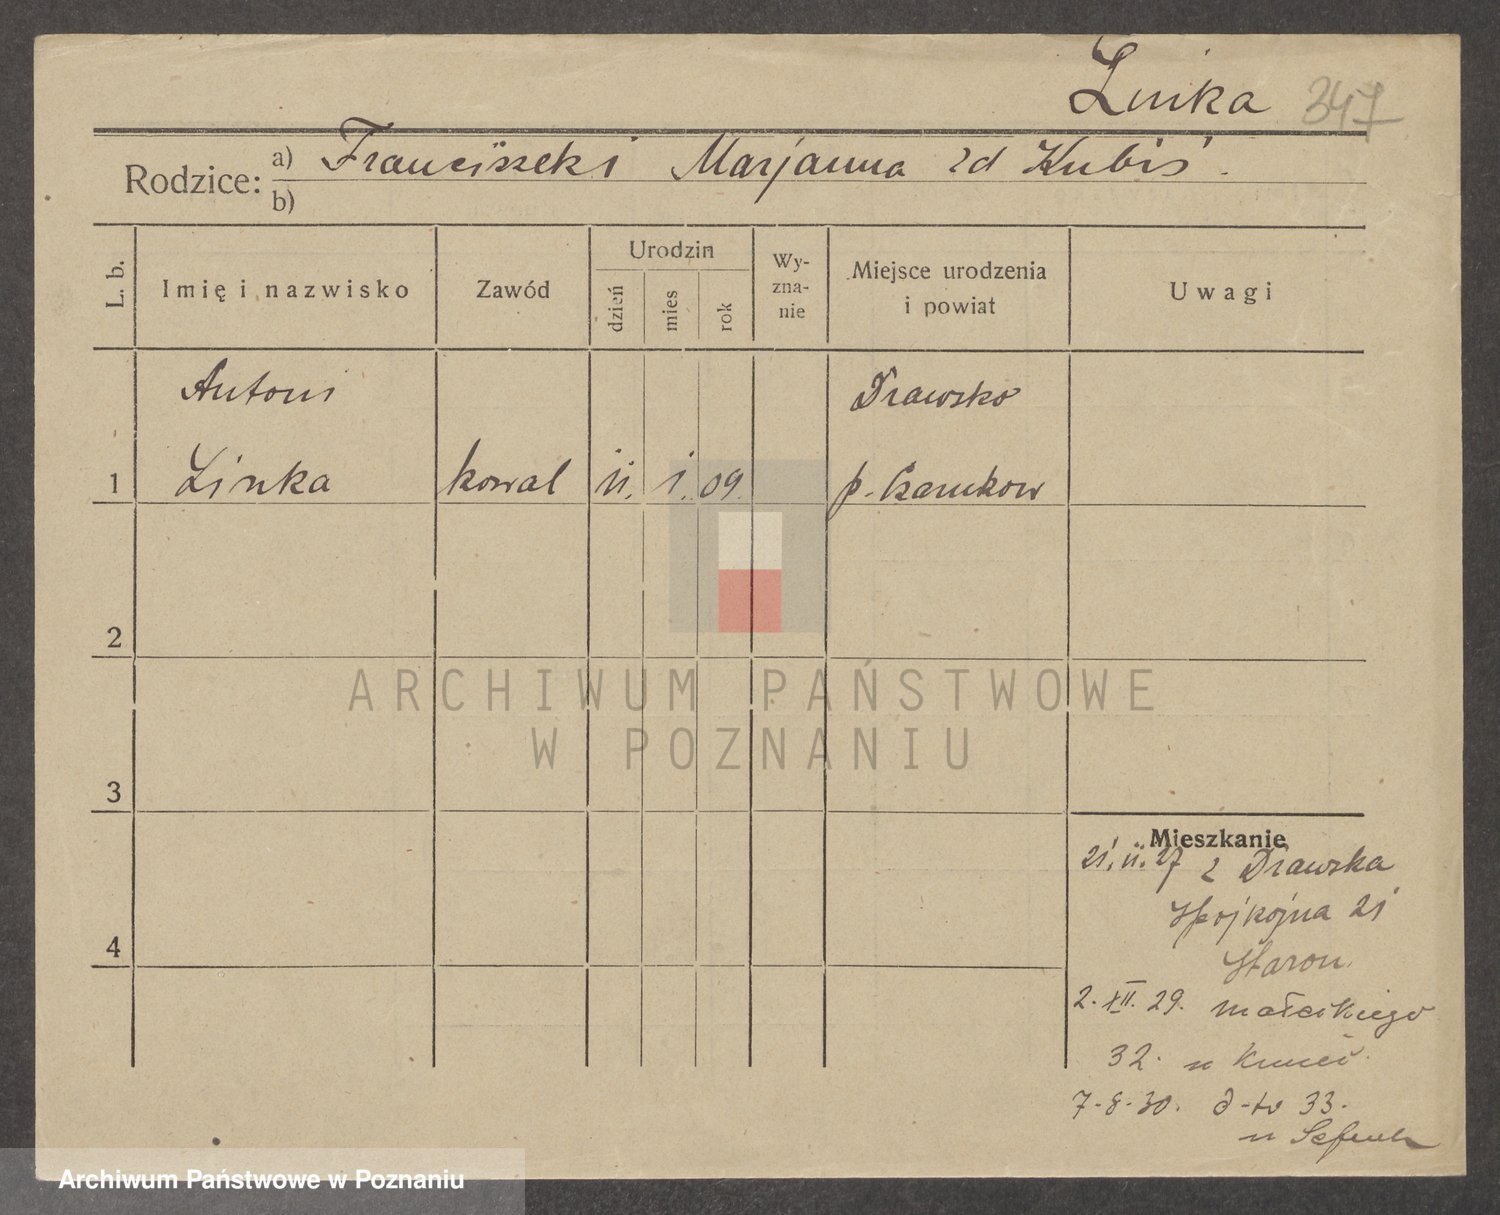 Linka 347
Rodzice: a) Franciszek i Marjanna zd Kubiś.
b)
L. b. Imię i nazwisko Zawód Urodzin dzień mies rok Wy-zna-nie Miejsce urodzenia i powiat Uwagi
Antoni Drawsko
1 Linka kowal 11. 1. 09. p. Czarnkow
2
3
4
Mieszkanie
21. 11. 27 z Drawska
21
2. XII. 29. Małeckiego
32. u
7-8-30. d-to 33.
u
ARCHIWUM PAŃSTWOWE
W POZNANIU
Archiwum Państwowe w Poznaniu